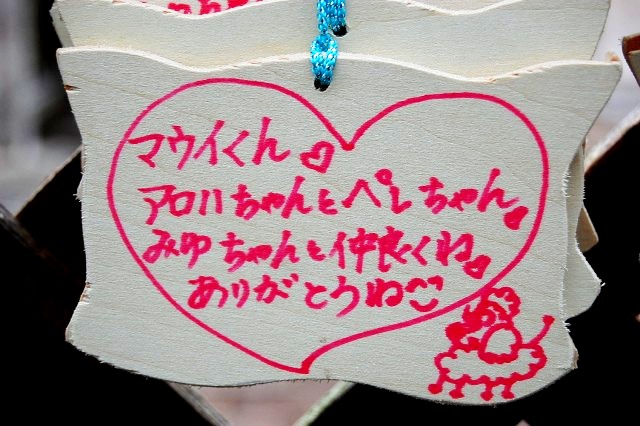 マウイくん♡
アロハちゃんとペレちゃん♡
みゆちゃんと仲良くね♡
ありがとうね